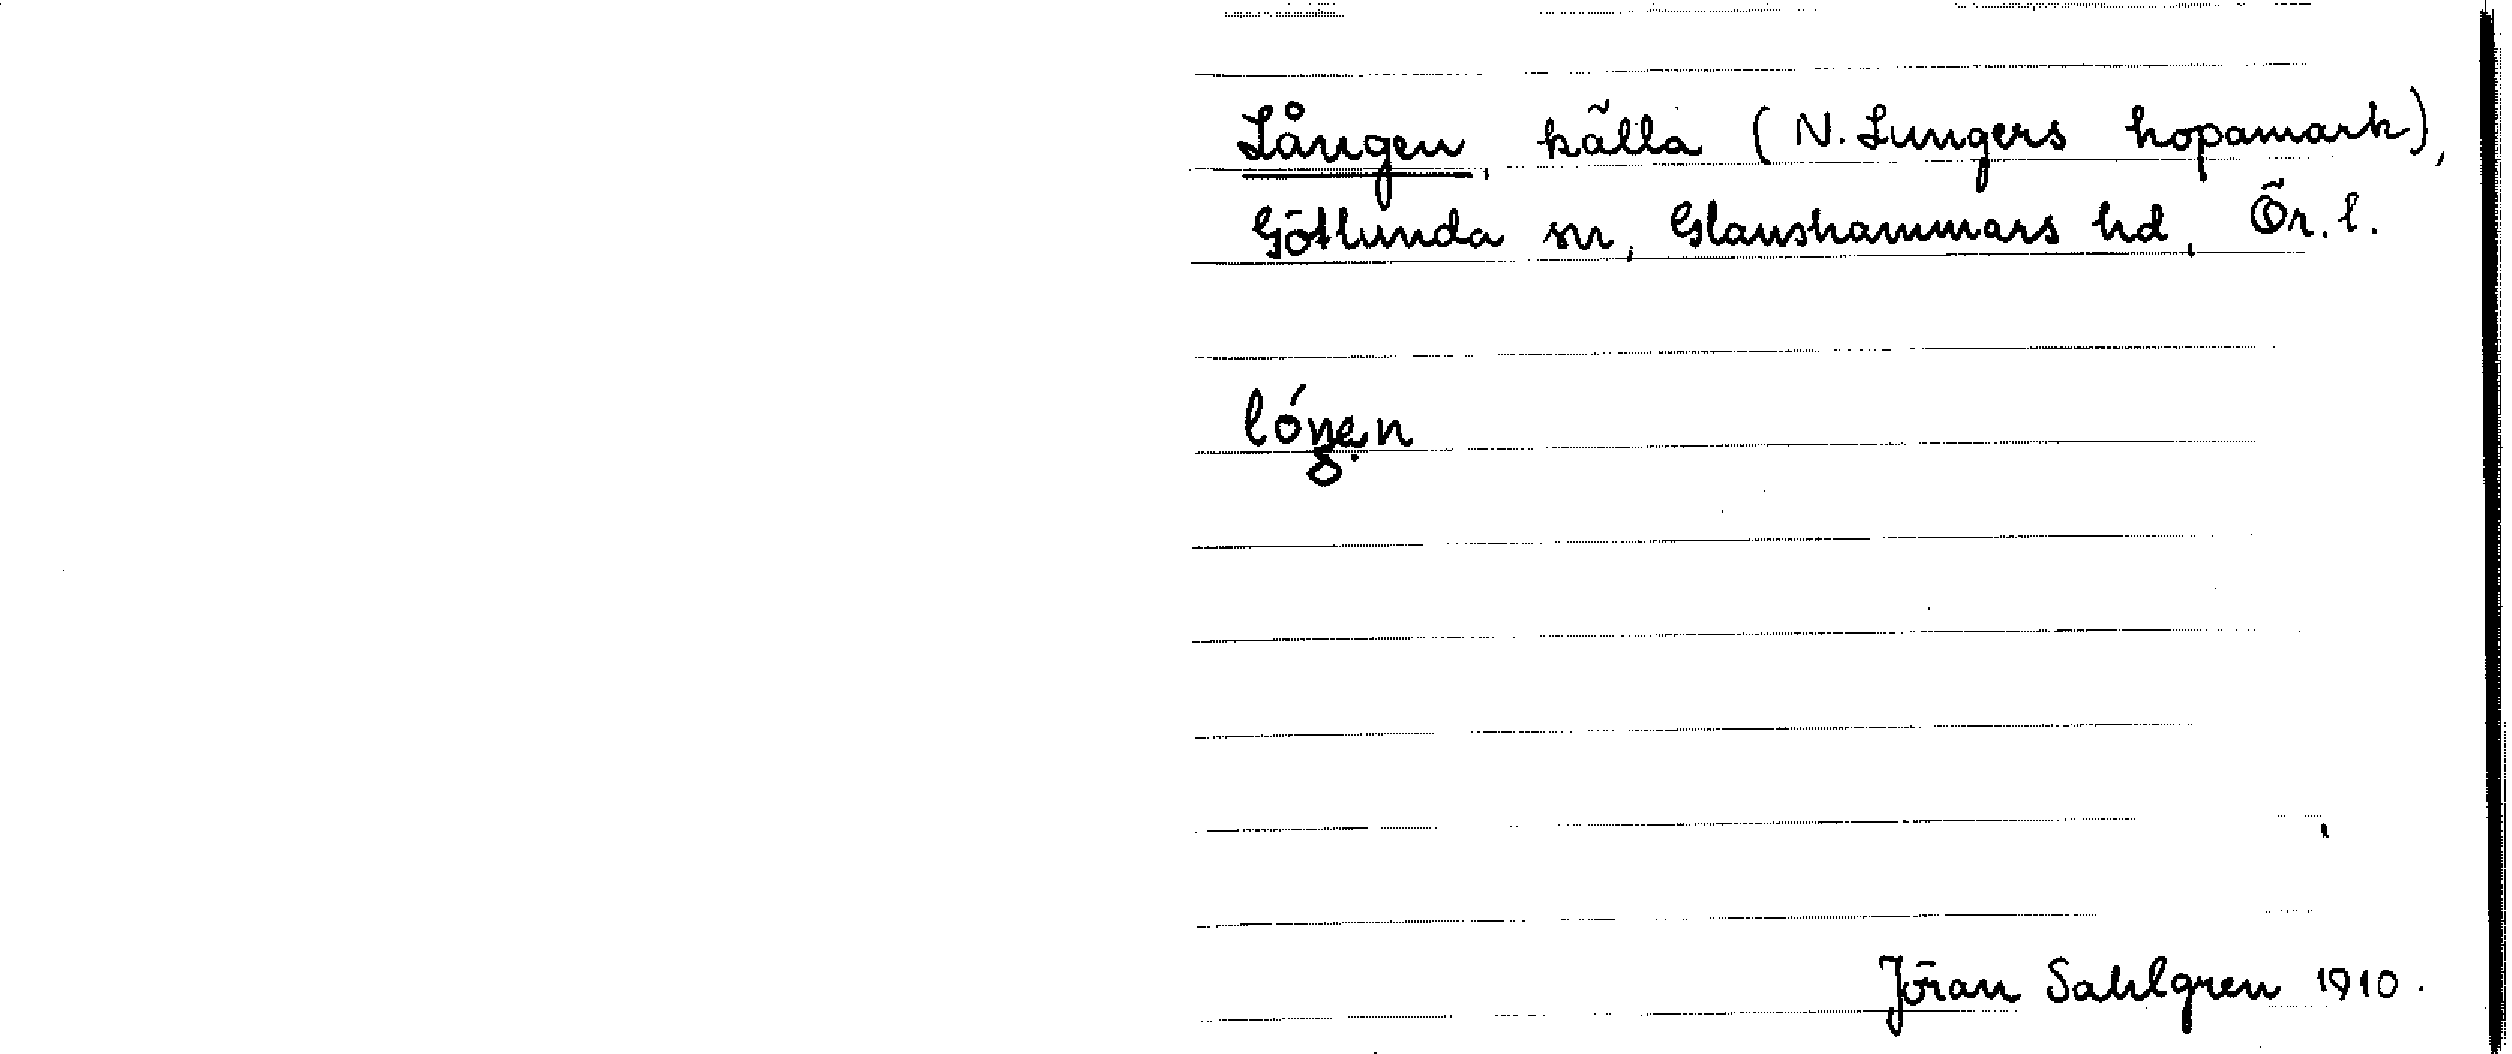 Lången, källa (N. Lungers hopamark),
Götlunda sn, Glanshammars hd, Ör. l.
lóŋen
Jöran Sahlgren 1910.